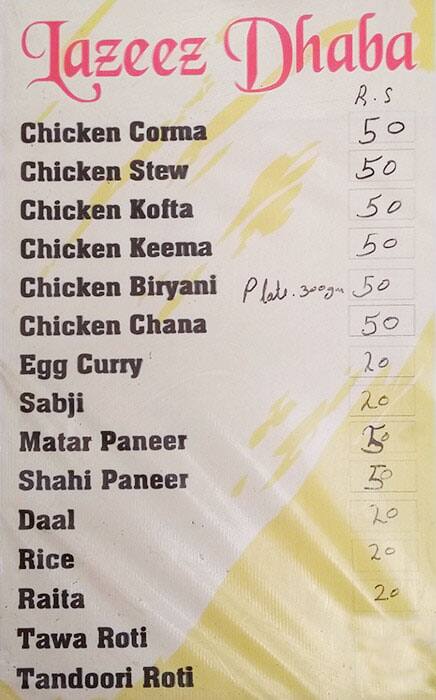 Lazeez Dhaba
R.S
Chicken Corma 50
Chicken Stew 50
Chicken Kofta 50
Chicken Keema 50
Chicken Biryani Plate. 300gm 50
Chicken Chana 50
Egg Curry 20
Sabji 20
Matar Paneer 50
Shahi Paneer 50
Daal 20
Rice 20
Raita 20
Tawa Roti
Tandoori Roti